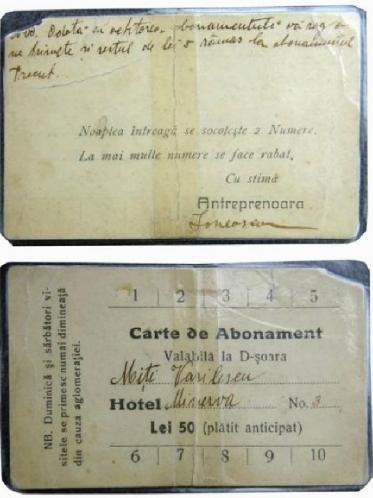 odată cu achitarea abonamentului vă rog a-
mi trimete și restul de lei 5 rămas la abonamentul
trecut.
Noaptea întreagă se socotește 2 Numere.
La mai multe numere se face rabat.
Cu stimă
Antreprenoara
Ionescu
NB. Duminică și sărbători vi-
sitele se primesc numai dimineață
din cauza aglomerației.
1 2 3 4 5
Carte de Abonament
Valabila la D-șoara
Mița Vasilescu
Hotel Minerva No. 3
Lei 50 (plătit anticipat)
6 7 8 9 10